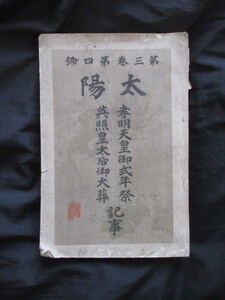 第三卷第四號
太陽
孝明天皇御式年祭
英照皇太后御大葬
記事